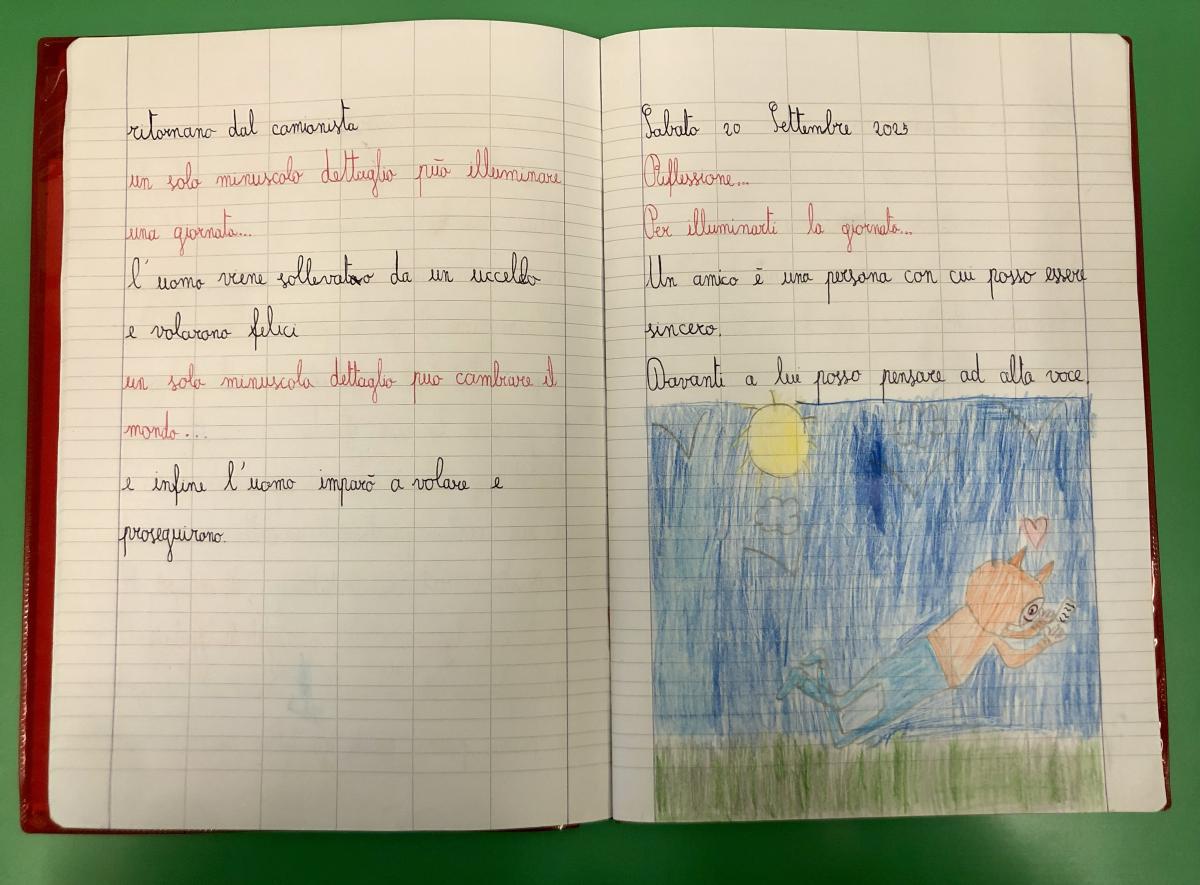 ritornano dal camionista
un solo minuscolo dettaglio può illuminare
una giornata...
l'uomo viene sollevato da un uccello
e volarono felici
un solo minuscolo dettaglio puo cambiare il
mondo...
e infine l'uomo imparò a volare e
proseguirono.
Sabato 20 Settembre 2025
Riflessione...
Per illuminarti la giornata...
Un amico è una persona con cui posso essere
sincero.
Davanti a lui posso pensare ad alta voce.